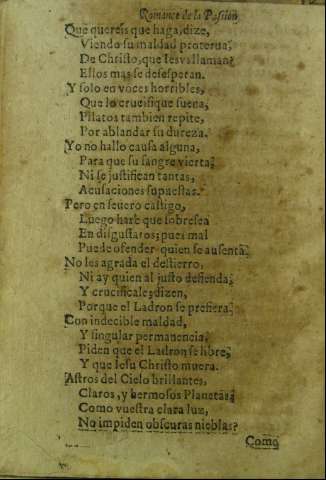 Romance de la Passion
Que quereis que haga, dize,
Viendo su maldad proterua,
De Christo, que Iesus llaman?
Ellos mas se desesperan.
Y solo en voces horribles,
Que lo crucifique suena,
Pilatos tambien repite,
Por ablandar su dureza.
Yo no hallo causa alguna,
Para que su sangre vierta,
Ni se justifican tantas,
Acusaciones supuestas.
Pero en seuero castigo,
Luego haré que
En disgustaros; pues mal
Puede ofender quien se ausenta.
No les agrada el destierro,
Ni ay quien al justo defienda,
Y crucificale, dizen,
Porque el Ladron se prefiera,
Con indecible maldad,
Y singular permanencia,
Piden que el Ladron se libre,
Y que Iesu Christo muera.
Astros del Cielo brillantes,
Claros, y hermosos Planetas,
Como vuestra clara luz,
No impiden obscuras nieblas?
Como